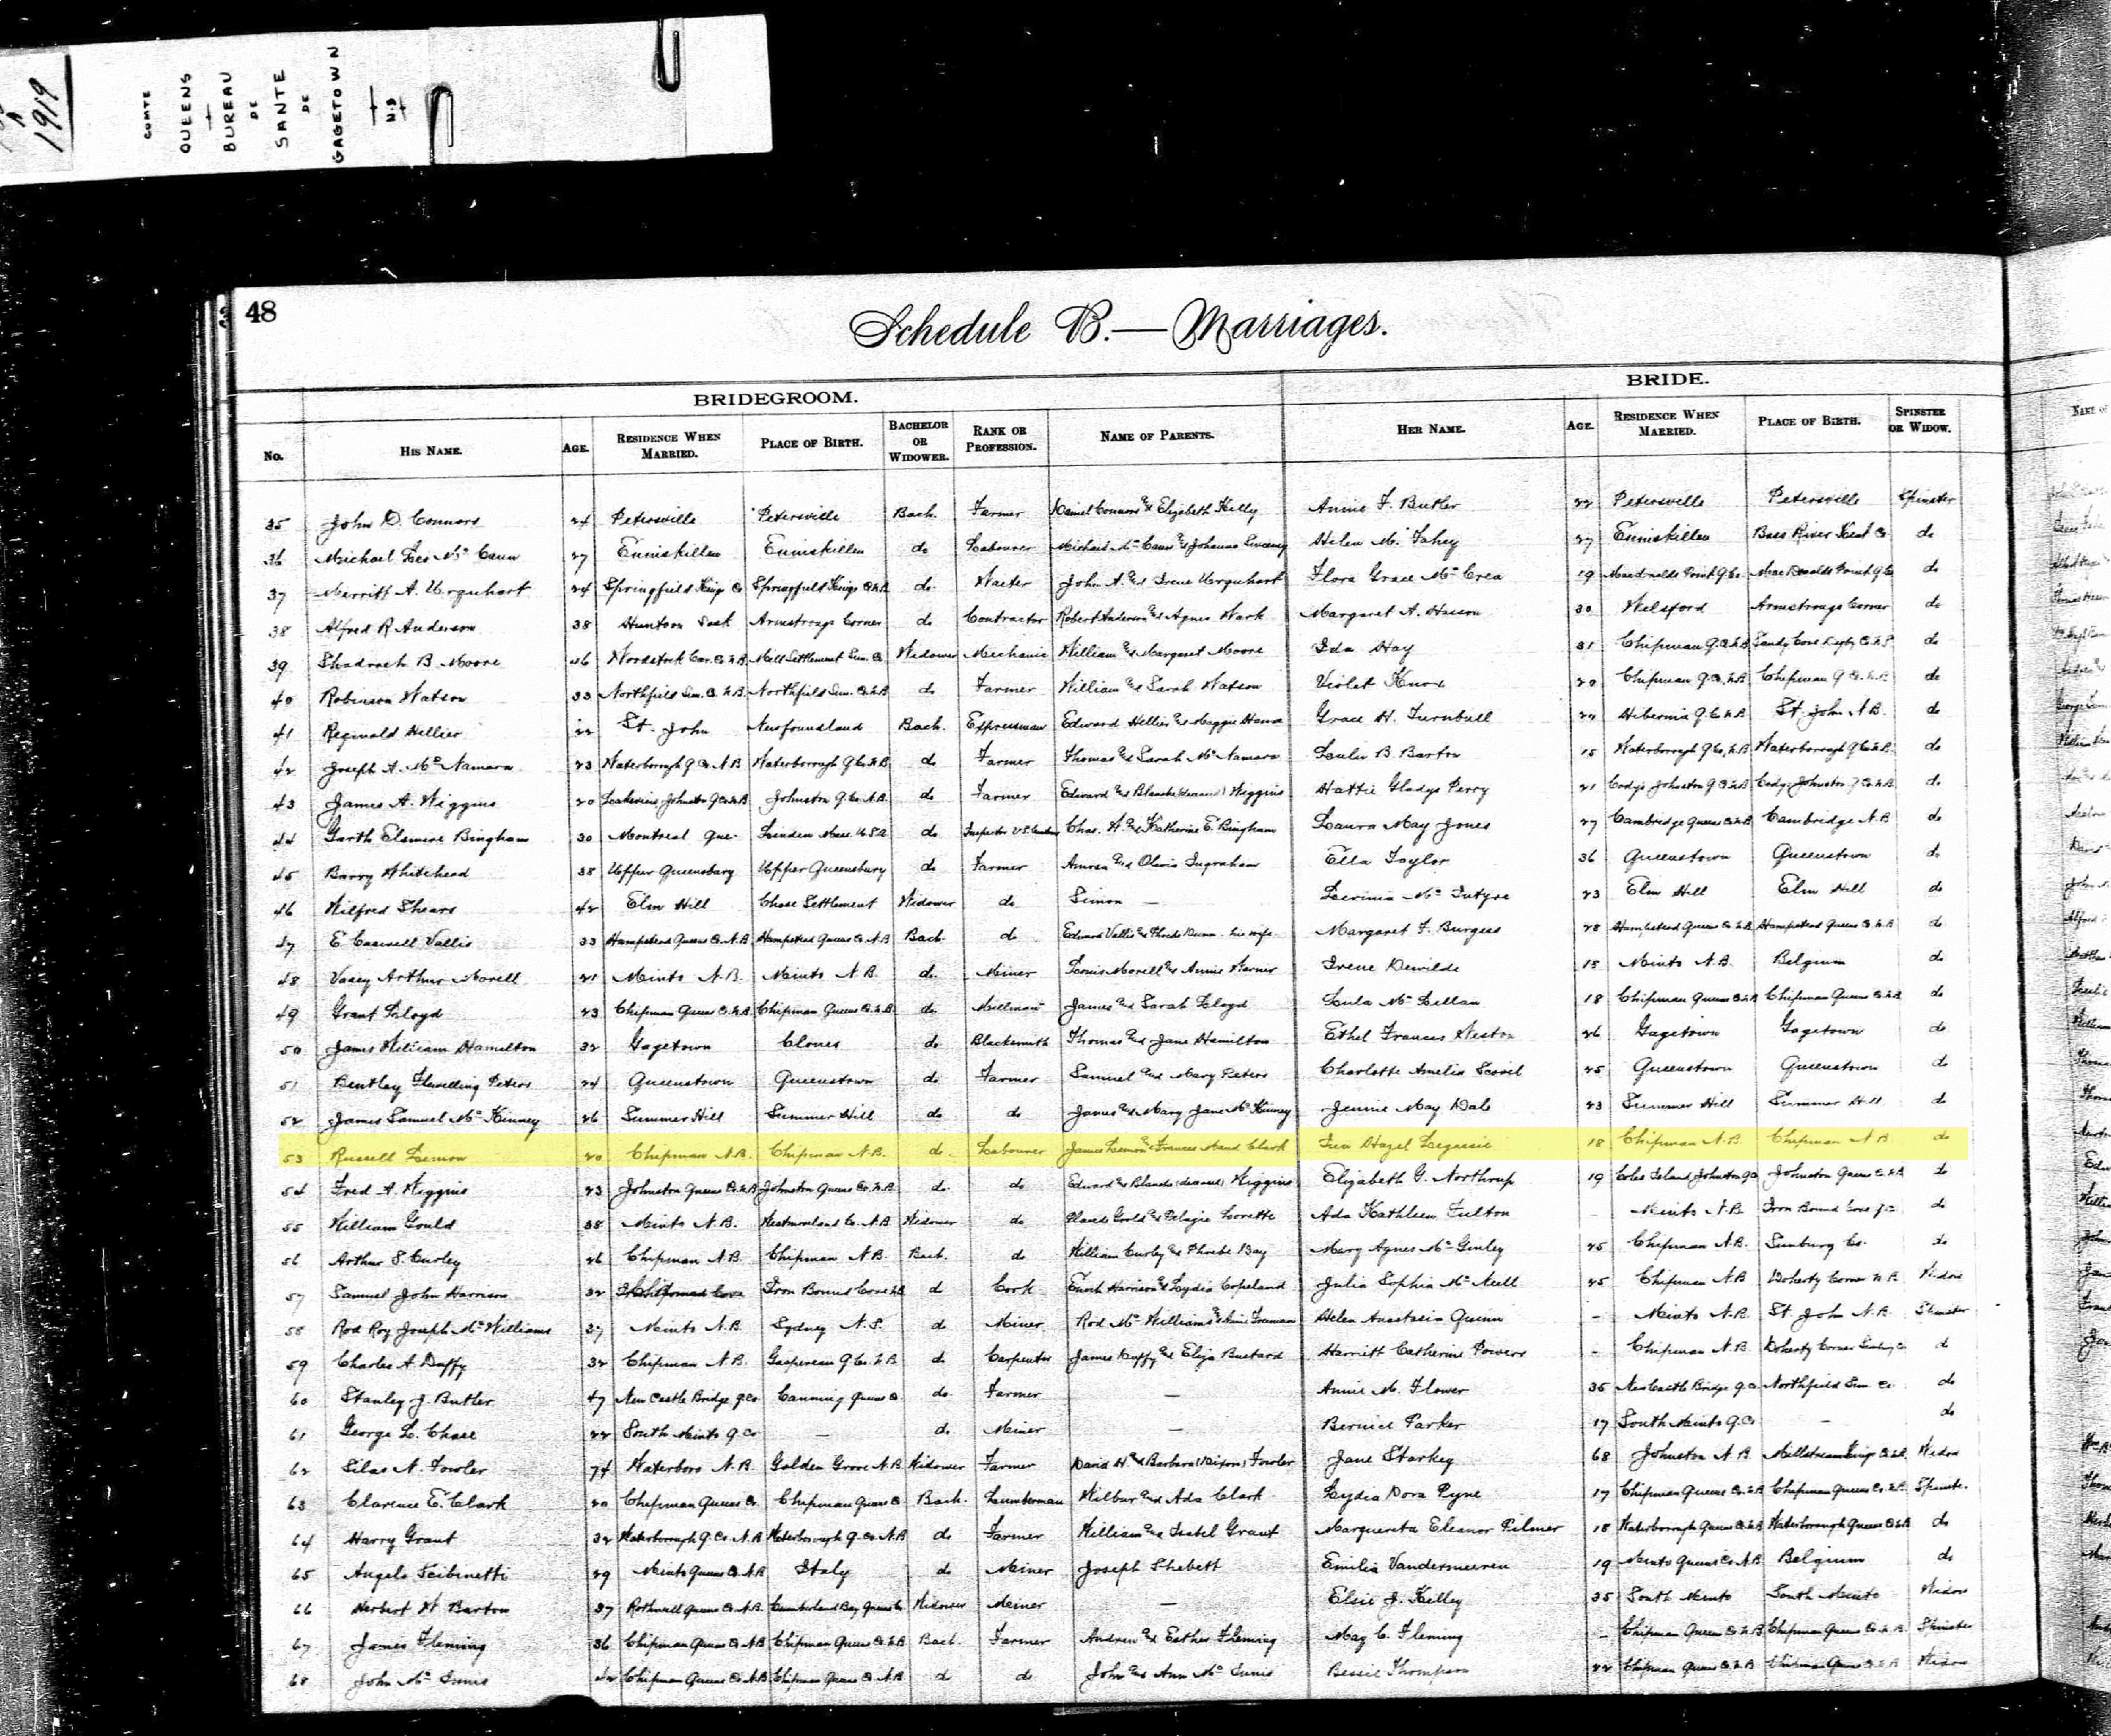 1919
COMTE
QUEENS
BUREAU
DE
SANTE
DE
GAGETOWN
N.B
48
Schedule B.—Marriages.
BRIDEGROOM. BRIDE.
No. HIS NAME. AGE. RESIDENCE WHEN MARRIED. PLACE OF BIRTH. BACHELOR OR WIDOWER. RANK OR PROFESSION. NAME OF PARENTS. HER NAME. AGE. RESIDENCE WHEN MARRIED. PLACE OF BIRTH. SPINSTER OR WIDOW.
35 John D. Connors 24 Petersville Petersville Bach. Farmer Daniel Connors & Elizabeth Kelly Annie F. Butler 22 Petersville Petersville Spinster
36 Michael Leo Mc Cann 27 Enniskillen Enniskillen do Labourer Michael Mc Cann & Johanna Sweeney Helen M. Fahey 27 Enniskillen Bass River Kent Co do
37 Merritt A. Urquhart 24 Springfield Kings Co Springfield Kings Co N.B do. Waiter John A. & Irene Urquhart Flora Grace Mc Crea 19 Macdonalds Point Q Co. MacDonalds Point Q Co do
38 Alfred R Anderson 38 Armstrongs Corner do Contractor Robert Anderson & Agnes Wark Margaret A. 30 Welsford Armstrongs Corner do
39 Shadrach B Moore 46 Woodstock Car. Co N.B. Mill Settlement Sun. Co Widower Mechanic William & Margaret Moore Ida Hay 31 Chipman Q.Co N.B Sandy Cove Digby Co N.S do
40 Robinson Watson 33 Northfield Sun. Co. N.B. Northfield Sun. Co N.B do Farmer William & Sarah Watson Violet Knox 20 Chipman Q Co. N.B Chipman Q Co. N.B do
41 Reginald Hellier 22 St. John Newfoundland Bach. Expressman Edward Hellier & Maggie Grace H. Turnbull 22 Hibernia Q. Co N.B St. John N B. do
42 Joseph A. Mc Namara 23 Waterborough Q Co N B Waterborough Q Co N.B. do Farmer Thomas & Sarah Mc Namara Lulu B. Barton 18 Waterborough Q Co, N.B Waterborough Q Co N.B. do
43 James A. Wiggins 20 Johnston Q Co N B Johnston Q. Co. N.B. do Farmer Edward & Blanche (deceased) Wiggins Hattie Gladys Perry 21 Codys Johnston Q Co N.B Codys Johnston Q Co. N.B do.
44 Garth Elsmere Bingham 30 Montreal Que. Linden Mass. U.S.A do Chas. H. & Katherine E. Bingham Laura May Jones 27 Cambridge Queens Co N.B Cambridge N.B do
45 Barry Whitehead 38 Upper Queensbury Upper Queensbury do Farmer & Ingraham Ella Taylor 36 Queenstown Queenstown do
46 Wilfred Shears 42 Elm Hill Chase Settlement Widower do Simon — Levinia Mc Intyre 23 Elm Hill Elm Hill do
47 E. Caswell Vallis 33 Hampstead Queens Co. N.B Hampstead Queens Co. N.B Bach. do Edward Vallis & Phoebe Dunn his wife Margaret F. Burgess 28 Hampstead Queens Co N.B Hampstead Queens Co N.B do
48 Vasey Arthur Morell 21 Minto N.B. Minto N B. do. Miner Louis Morell & Annie Warner Irene Dewilde 18 Minto N.B. Belgium do
49 Grant Lloyd 23 Chipman Queens Co. N.B Chipman Queens Co. N.B. do Millman James & Sarah Lloyd Lula Mc Lellan 18 Chipman Queens Co N.B Chipman Queens Co N.B do
50 James William Hamilton 32 Gagetown Clones do Blacksmith Thomas & Jane Hamilton Ethel Frances Weston 26 Gagetown Gagetown do
51 Bentley Flewelling Peters 24 Queenstown Queenstown do Farmer Samuel & Mary Peters Charlotte Amelia Scovil 25 Queenstown Queenstown do
52 James Samuel Mc Kinney 26 Summer Hill Summer Hill do do James & Mary Jane Mc Kinney Jennie May Dale 23 Summer Hill Summer Hill do
53 Russell Lemon 20 Chipman N.B. Chipman N.B. do. Labourer James Lemon & Frances Maud Clark Iva Hazel Legassie 18 Chipman N.B. Chipman N B do
54 Fred A. Wiggins 23 Johnston Queens Co. N.B Johnston Queens Co. N.B do. do Edward & Blanche (deceased) Wiggins Elizabeth G. Northrup 19 Coles Island Johnston Q Co Johnston Queens Co. N.B do
55 William Gould 38 Minto N.B. Westmorland Co. N.B Widower do & Pelagie Ada Kathleen Fulton - Minto N.B Iron Bound Cove Q Co do
56 Arthur S. Curley 26 Chipman N.B. Chipman N.B. Bach. do William Curley & Phoebe Day Mary Agnes Mc Ginley 25 Chipman N.B. Sunbury Co. do
57 Samuel John Harrison 32 Iron Bound Cove N.B d Cook Enoch Harrison & Lydia Copeland Julia Sophia Mc Neill 45 Chipman N.B Doherty Corner N.B. Widow
58 Rod Roy Joseph Mc Williams 27 Minto N.B. Sydney N.S. d Miner Rod Mc Williams & Annie Freeman Helen Anastasia Quinn - Minto N.B. St John N.B. Spinster
59 Charles A. Duffy 32 Chipman N.B. Gaspereau Q Co. N.B d. Carpenter James Duffy & Eliza Bustard Harriett Catherine Powers - Chipman N.B. Doherty Corner Sunbury Co d
60 Stanley J. Butler 47 New Castle Bridge Q Co. Canning Queens Co do. Farmer — Annie M. Flower 35 New Castle Bridge Q. Co Northfield Sun. Co. do
61 George L. Chase 22 South Minto Q Co — d. Miner — Bernice Parker 17 South Minto Q. Co — do
62 Silas N. Fowler 74 Waterboro N.B. Golden Grove N.B. Widower Farmer David H & Barbara (Dixon) Fowler Jane Starkey 68 Johnston N.B. Millstream Kings Co N.B. Widow
63 Clarence E. Clark 20 Chipman Queens Co. Chipman Queens Co Bach. Lumberman Wilbur & Ada Clark Lydia Dora Pyne 17 Chipman Queens Co. N.B Chipman Queens Co. N.B. Spinster
64 Harry Grant 32 Waterborough Q. Co. N.B Waterborough Q. Co. N.B do Farmer William & Isabel Grant Marguereta Eleanor Pilmer 18 Waterborough Queens Co N.B Waterborough Queens Co N.B do
65 Angelo Scibinetti 29 Minto Queens Co. N.B Italy do Miner Joseph Shebett Emilia Vandermeeren 19 Minto Queens Co. N.B Belgium do
66 Herbert W. Barton 37 Rothwell Queens Co. N.B. Cumberland Bay Queens Co Widower Miner — Elsie J. Kelley 35 South Minto South Minto Widow
67 James Fleming 36 Chipman Queens Co. N.B Chipman Queens Co. N.B Bach. Farmer Andrew & Esther Fleming May C. Fleming - Chipman Queens Co N.B Chipman Queens Co. N.B. Spinster
68 John Mc Innis 42 Chipman Queens Co. N.B Chipman Queens Co. N.B d do John & Ann Mc Innis Bessie Thompson 22 Chipman Queens Co. N.B Chipman Queens Co. N.B Widow